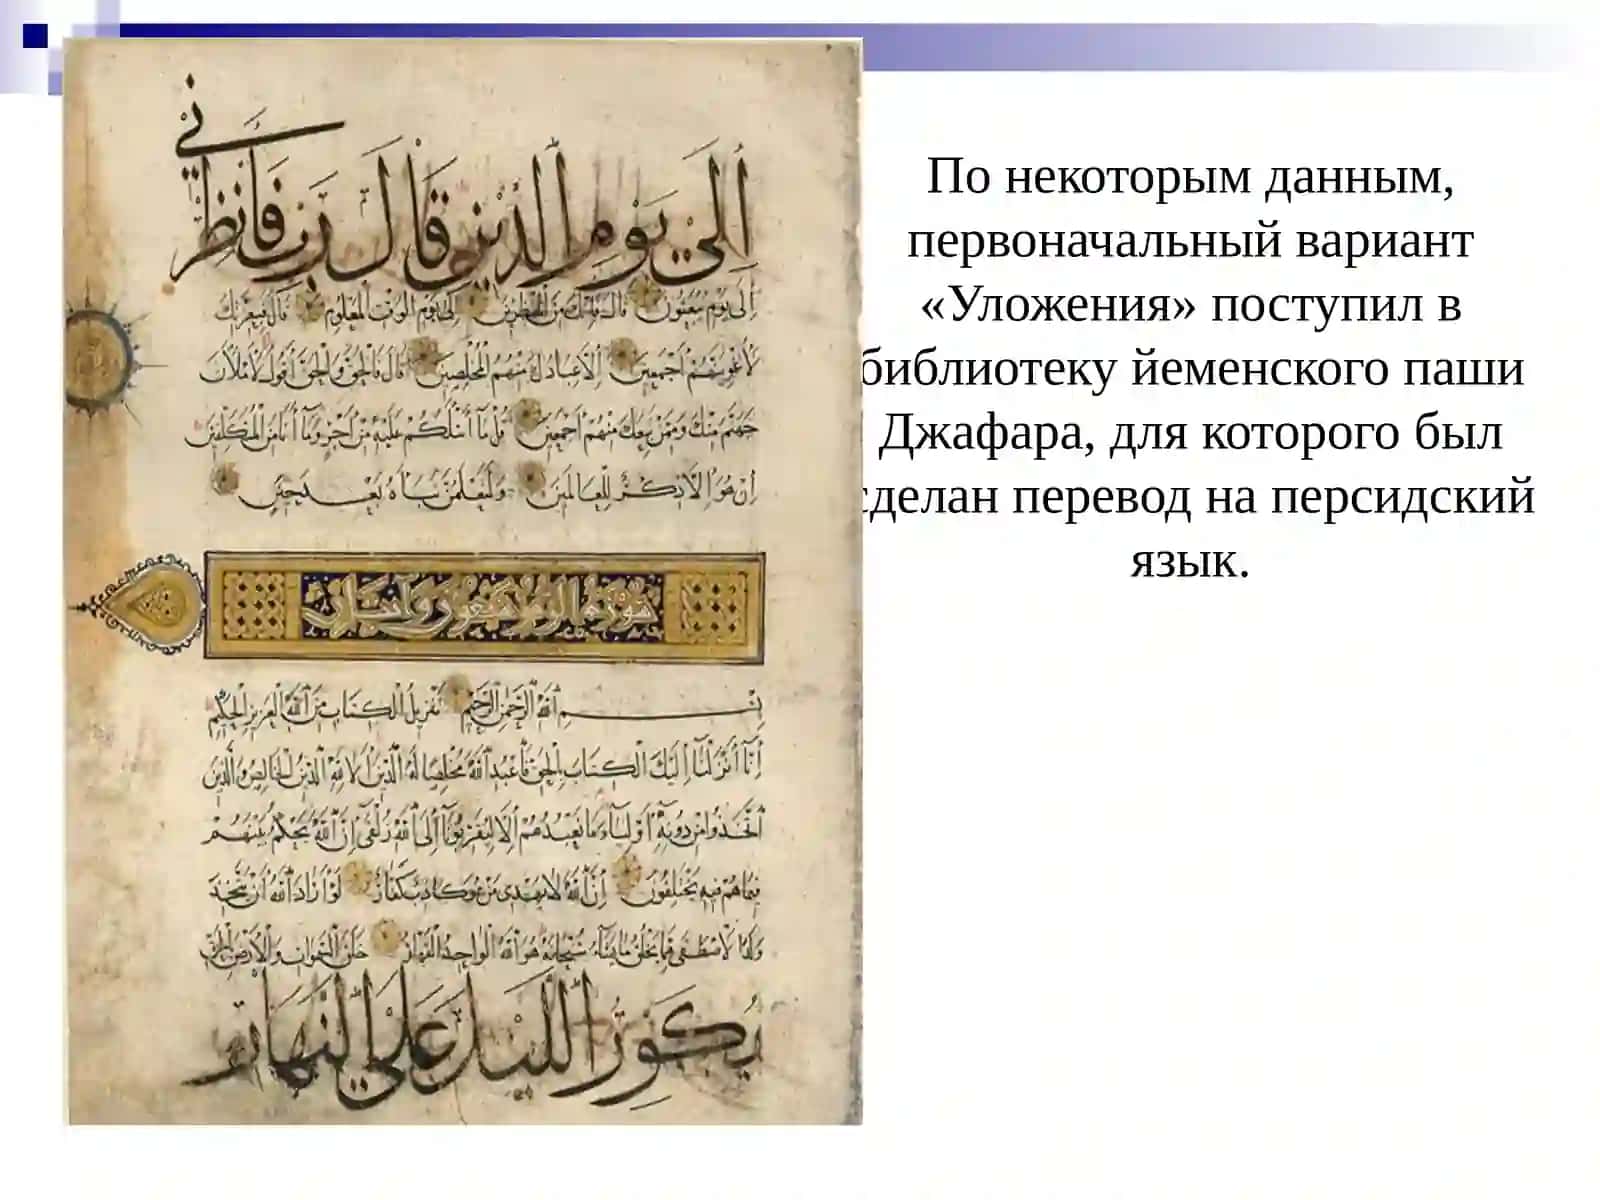 إلى يوم الدين قال رب فأنظرني
إلى يوم يبعثون قال فإنك من المنظرين إلى يوم الوقت المعلوم قال فبعزتك
لأغوينهم أجمعين إلا عبادك منهم المخلصين قال فالحق والحق أقول لأملأن
جهنم منك وممن تبعك منهم أجمعين قل ما أسئلكم عليه من أجر وما أنا من المتكلفين
إن هو إلا ذكر للعالمين ولتعلمن نبأه بعد حين
سورة الزمر سبعون وآيتان
بسم الله الرحمن الرحيم تنزيل الكتاب من الله العزيز الحكيم
إنا أنزلنا إليك الكتاب بالحق فاعبد الله مخلصا له الدين ألا لله الدين الخالص والذين
اتخذوا من دونه أولياء ما نعبدهم إلا ليقربونا إلى الله زلفى إن الله يحكم بينهم
فيما هم فيه يختلفون إن الله لا يهدي من هو كاذب كفار لو أراد الله أن يتخذ
ولدا لاصطفى مما يخلق ما يشاء سبحانه هو الله الواحد القهار خلق السموات والأرض بالحق
يكور الليل على النهار
По некоторым данным,
первоначальный вариант
«Уложения» поступил в
библиотеку йеменского паши
Джафара, для которого был
сделан перевод на персидский
язык.